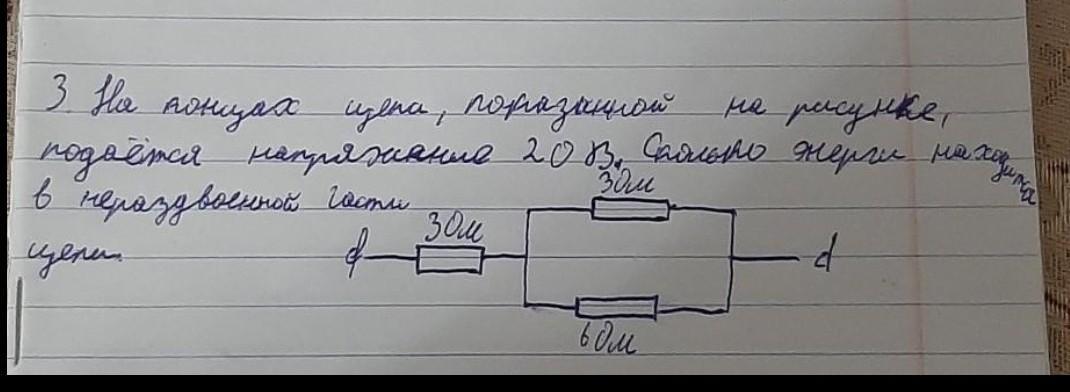 3. На концах цепа, показанной на рисунке,
подаётся напряжание 20 В. Сколько энерги находится
в нераздвоенной части
цепи.
3Ом
3Ом
6Ом